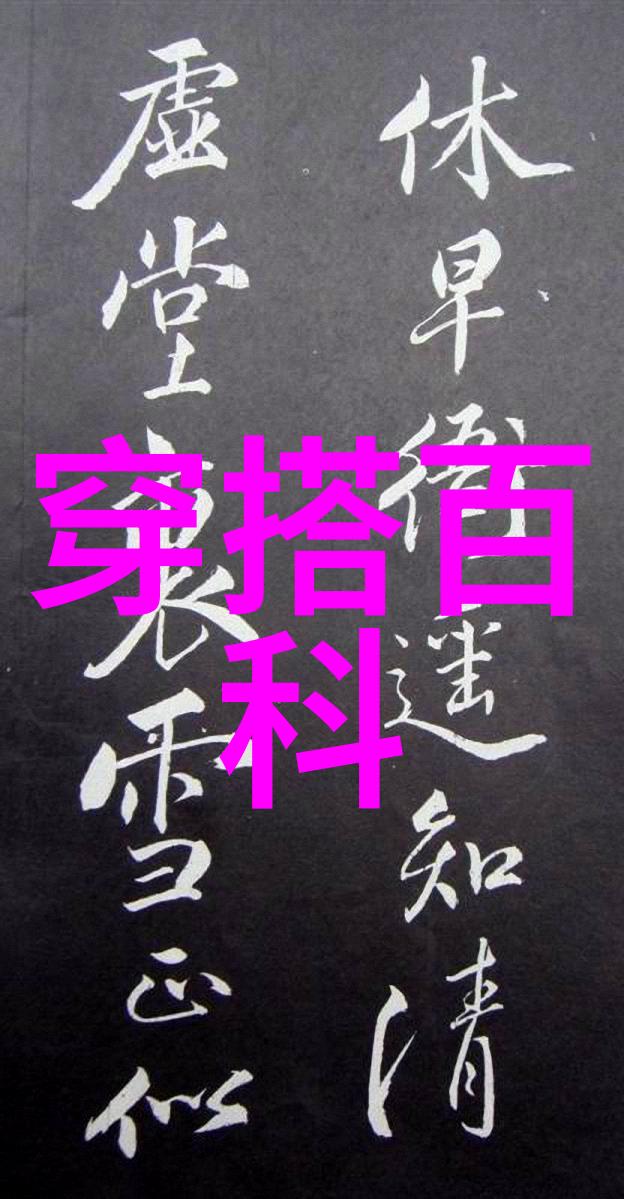 休早衙遥知清
虚堂裏雪正似
穿搭百
科